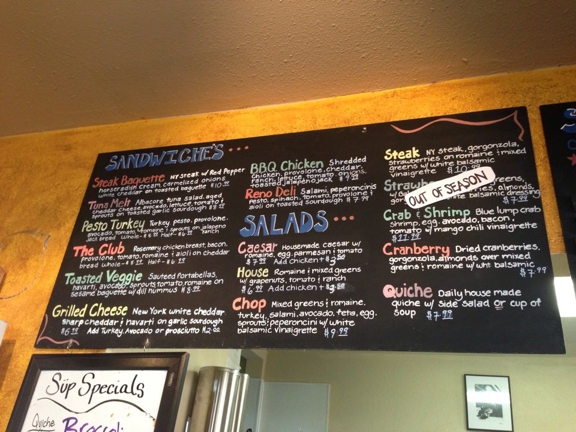 SANDWICHE'S
Steak Baguette NY Steak w/ Red Pepper
horseradish cream carmelized onions
white cheddar on toasted baguette $10.
Tuna Melt Albacore tuna salad, aged
cheddar, avocado, lettuce, tomato +
sprouts on toasted garlic sourdough
Pesto Turkey Turkey, pesto, provolone,
avocado, tomato, sprouts on jalapeno
jack bread
The Club Rosemary chicken breast, bacon,
provolone, tomato, romaine + aioli on cheddar
bread whole Half
Toasted Veggie Sauteed Portabellas,
havarti, avocado, sprouts, tomato, romaine on
sesame baguette w/ dill hummus
Grilled Cheese New York white cheddar
sharp cheddar + havarti on garlic sourdough
Add Turkey, Avocado or prosciutto
BBQ Chicken Shredded
chicken, provolone, cheddar,
ranch, lettuce, tomato, onions,
toasted jalapeno jack
Reno Deli Salami, peperoncini
pesto, spinach, tomato, provolone
aioli on toasted sourdough
SALADS
Caesar Housemade caesar w/
romaine, egg, parmesan + tomato
Add chicken +
House Romaine + mixed greens
w/ grapenuts, tomato + ranch
Add chicken +
Chop Mixed greens + romaine,
turkey, salami, avocado, feta, egg,
sprouts, peperoncini w/ white
balsamic vinaigrette $9.99
Steak NY Steak, gorgonzola,
strawberries on romaine + mixed
greens w/ white balsamic
vinaigrette
OUT OF SEASON
Crab & Shrimp Blue lump crab
shrimp, egg, avocado, bacon,
tomato w/ mango chili vinaigrette
Cranberry Dried cranberries,
gorgonzola, almonds over mixed
greens + romaine w/ wht balsamic
$7.99
Quiche Daily house made
quiche w/ side salad or cup of
soup $7.99
Süp Specials
Quiche Broccoli